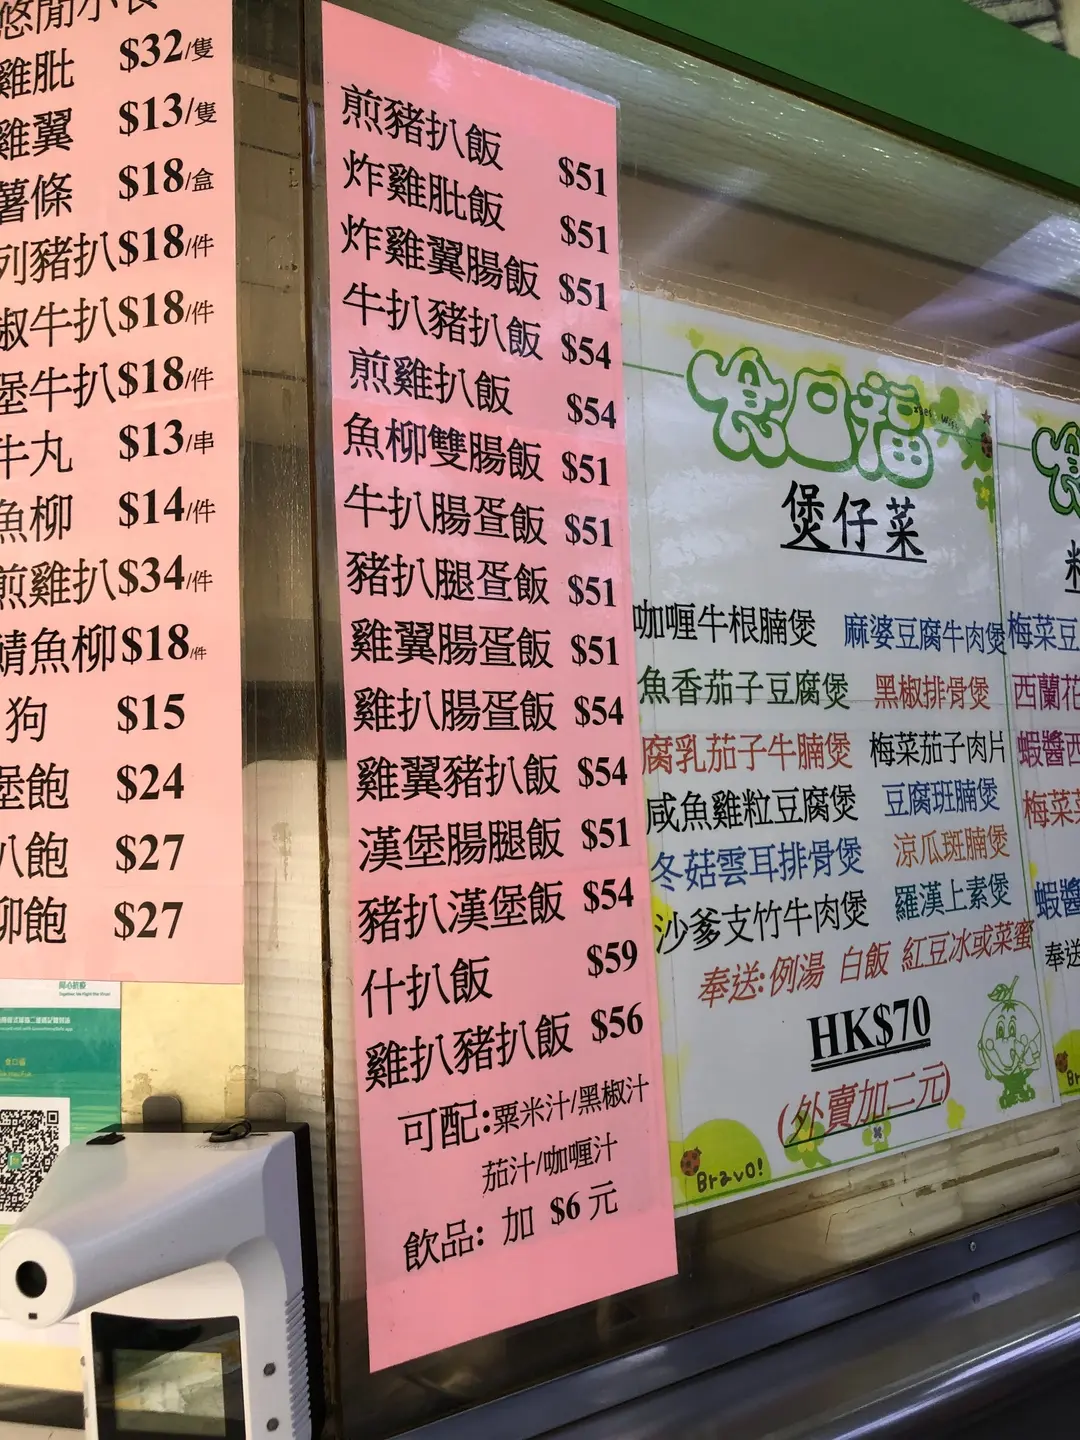 悠閒小食
雞肶 $32/隻
雞翼 $13/隻
薯條 $18/盒
列豬扒 $18/件
椒牛扒 $18/件
堡牛扒 $18/件
牛丸 $13/串
魚柳 $14/件
煎雞扒 $34/件
鯖魚柳 $18/件
狗 $15
堡飽 $24
扒飽 $27
柳飽 $27
煎豬扒飯 $51
炸雞肶飯 $51
炸雞翼腸飯 $51
牛扒豬扒飯 $54
煎雞扒飯 $54
魚柳雙腸飯 $51
牛扒腸蛋飯 $51
豬扒腿蛋飯 $51
雞翼腸蛋飯 $51
雞扒腸蛋飯 $54
雞翼豬扒飯 $54
漢堡腸腿飯 $51
豬扒漢堡飯 $54
什扒飯 $59
雞扒豬扒飯 $56
可配:粟米汁/黑椒汁
茄汁/咖喱汁
飲品: 加 $6 元
食口福
煲仔菜
咖喱牛根腩煲 麻婆豆腐牛肉煲
魚香茄子豆腐煲 黑椒排骨煲
腐乳茄子牛腩煲 梅菜茄子肉片
咸魚雞粒豆腐煲 豆腐班腩煲
冬菇雲耳排骨煲 涼瓜斑腩煲
沙爹支竹牛肉煲 羅漢上素煲
奉送:例湯 白飯 紅豆冰或菜蜜
HK$70
(外賣加二元)
Bravo!
梅菜豆
西蘭花
蝦醬西
梅菜
蝦醬
奉送